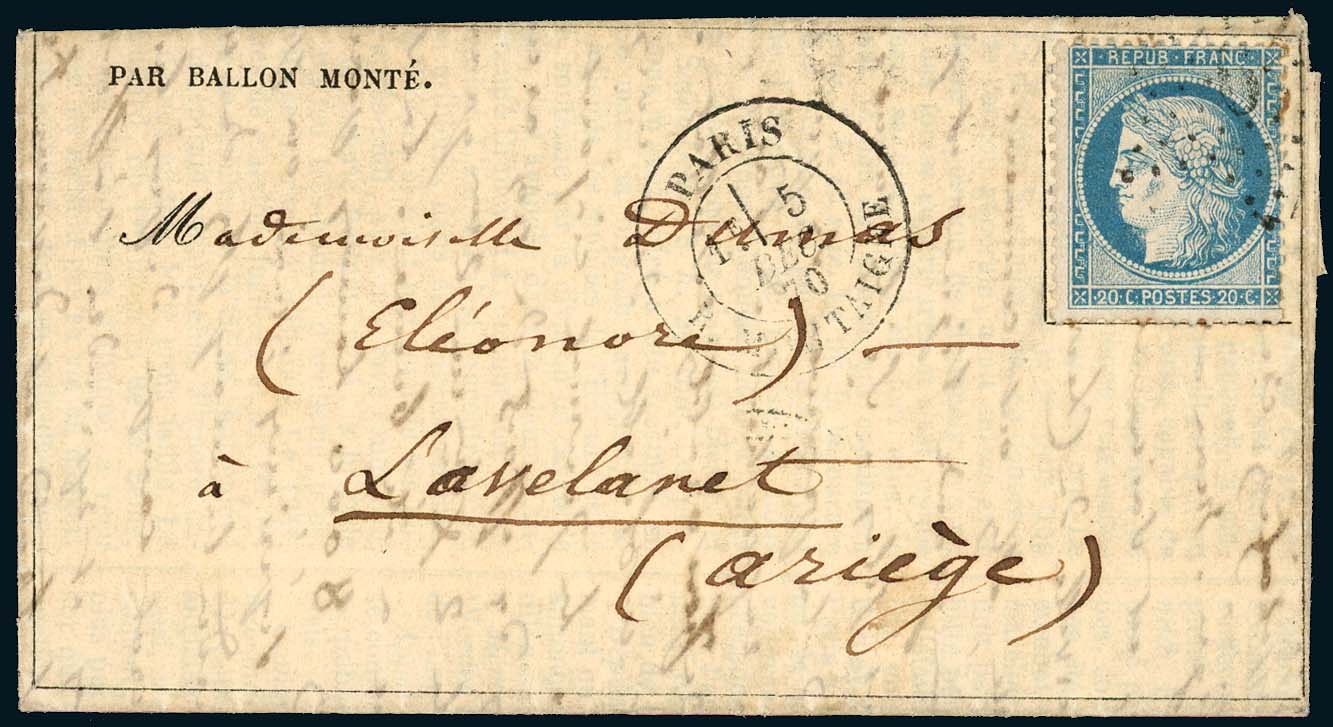 PAR BALLON MONTÉ.
REPUB · FRANC
20 · C · POSTES · 20 · C ·
PARIS
5
DEC
70
Mademoiselle Dumas
(Eléonore)
à Lavelanet
(ariège)